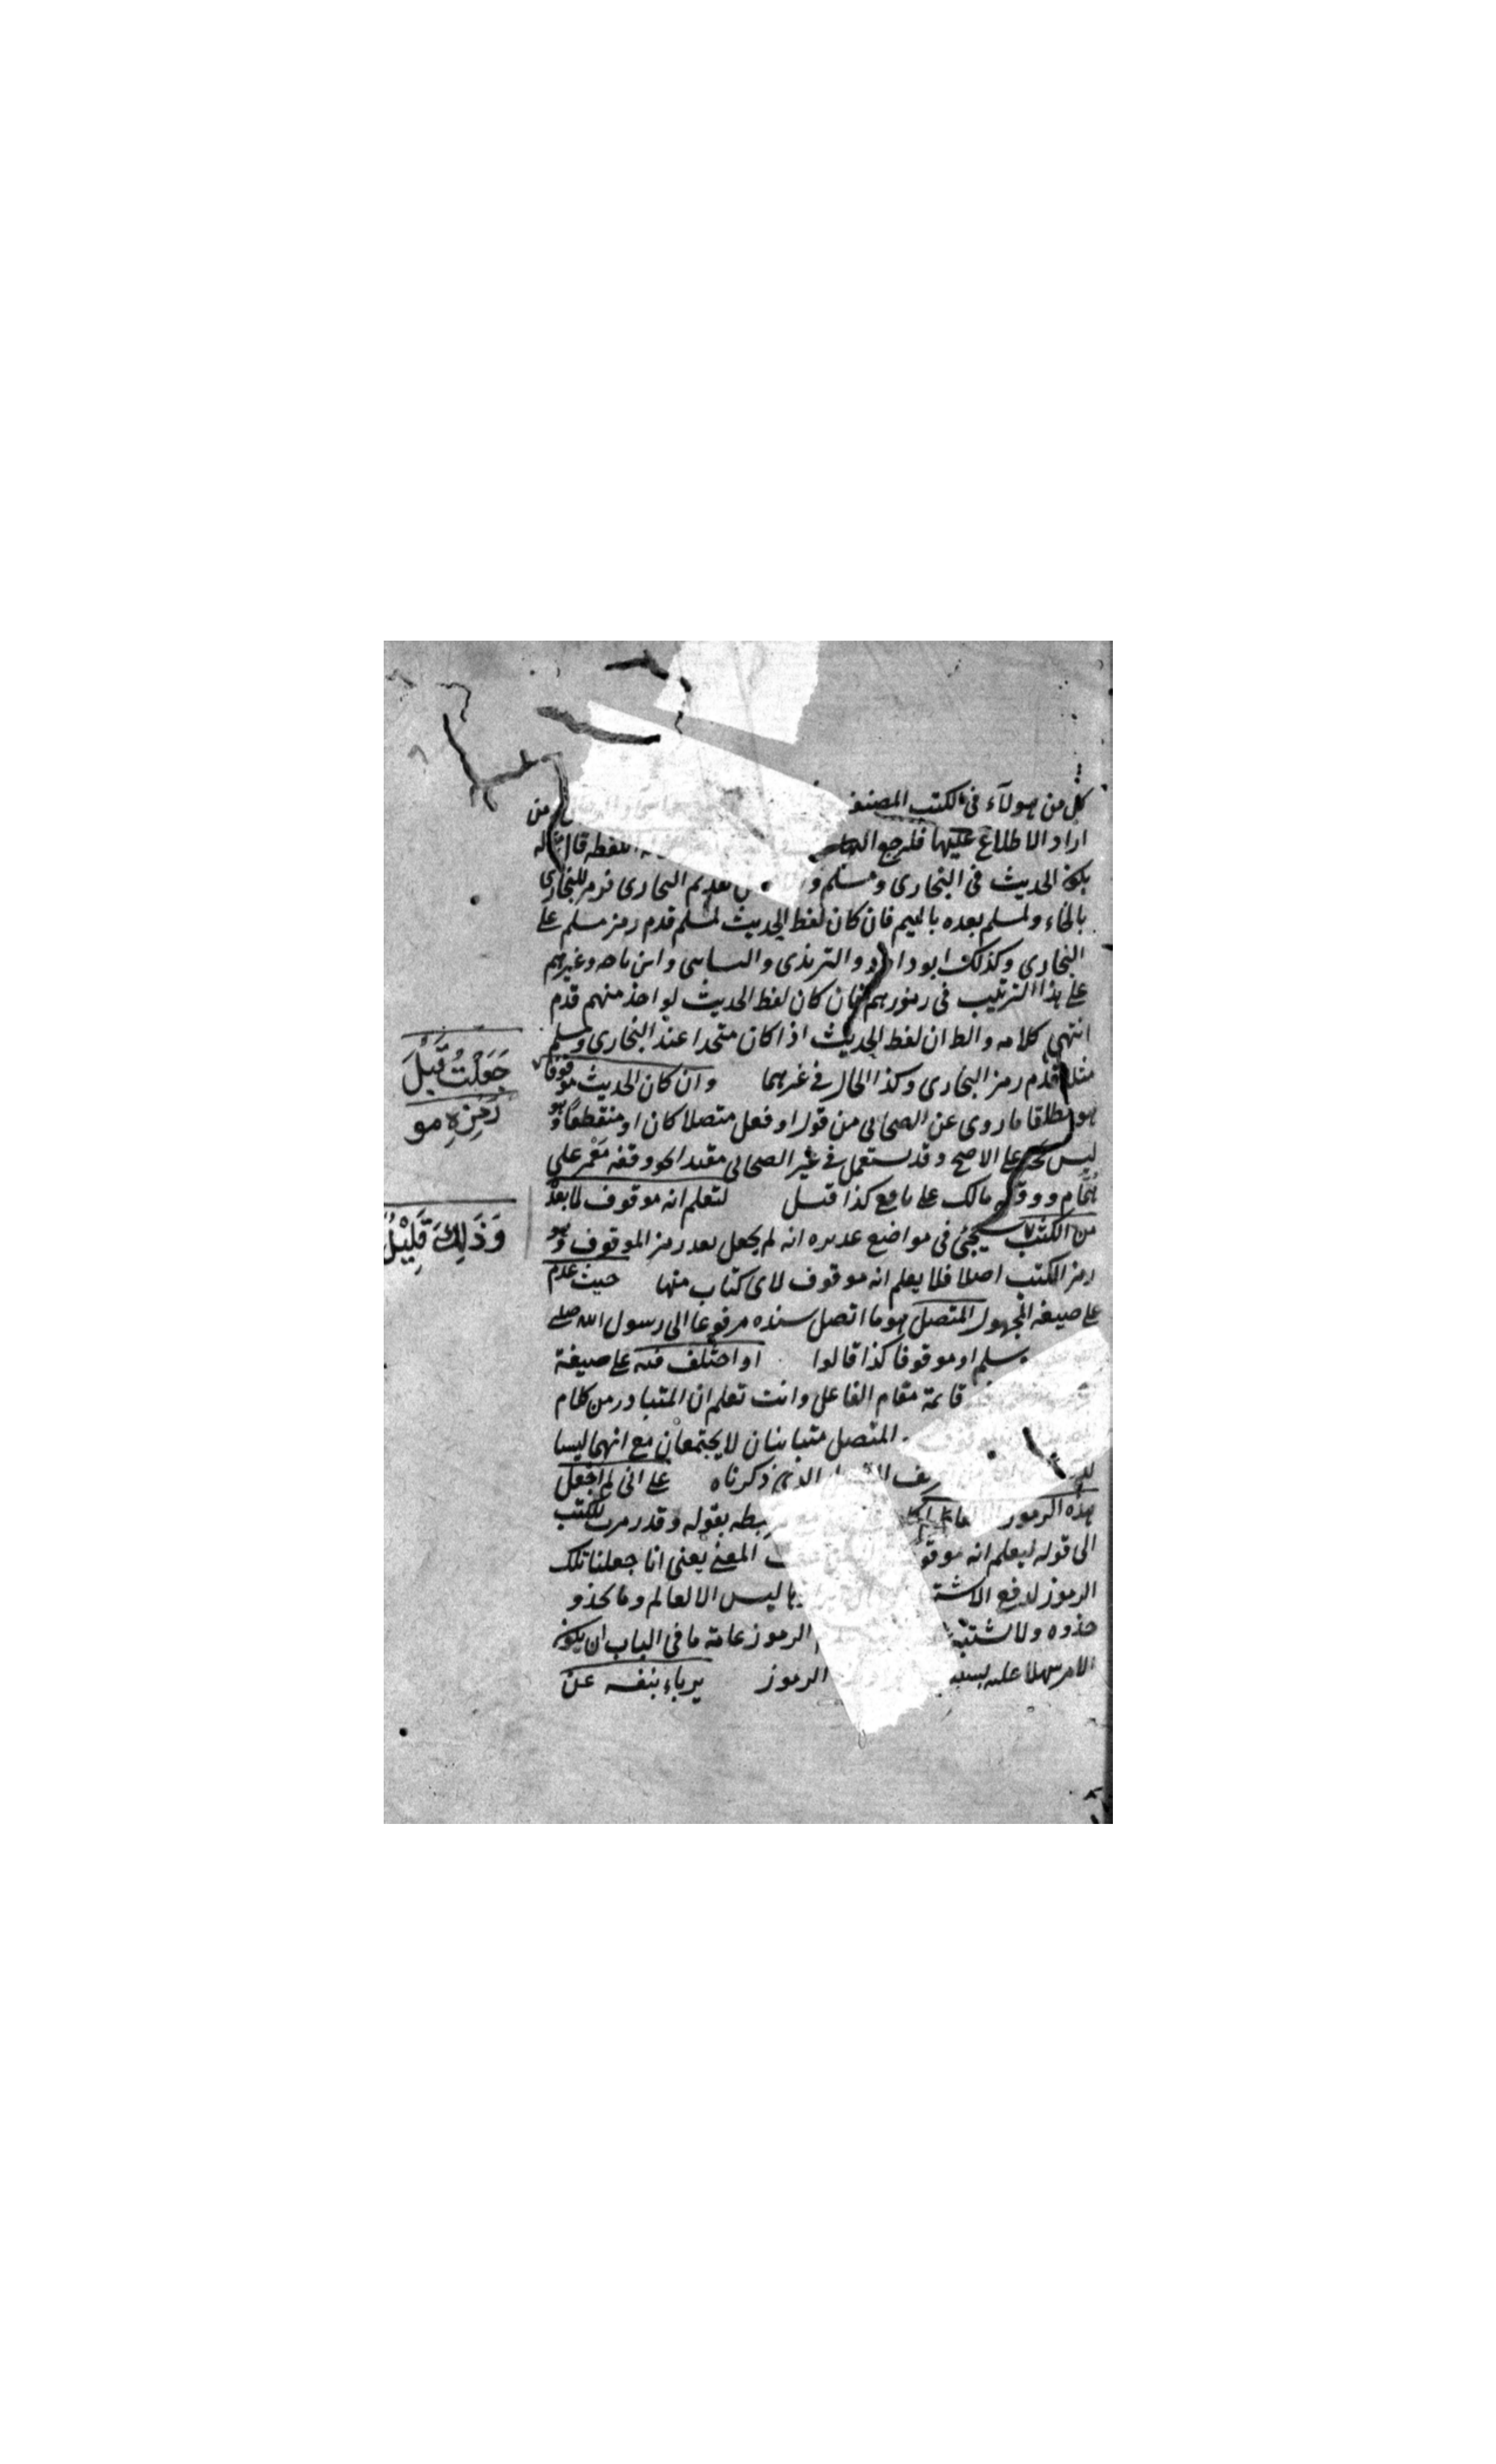 كل من هولآء في الكتب المصنفـ من
اراد الاطلاع عليها فليرجع اللفظه قال
يكون الحديث في البخارى ومسلم و تقديم البخارى فرمز للبخارى
بالخاء ولمسلم بعده بالميم فان كان لفظ الحديث لمسلم قدم رمز مسلم على
البخارى وكذلك ابو داود والترمذى والنساىى وابن ماجه وغيرهم
على هذا الترتيب في رموزهم فان كان لفظ الحديث لواحد منهم قدم
انتهى كلامه والظ ان لفظ الحديث اذا كان متحدا عند البخارى ومسلم
مثلا قدم رمز البخارى وكذا الحال في غيرهما وان كان الحديث موقوفا
جَعَلْتُ قَبْلَ
رَمْزِهِ مو
هو مطلقا ما روى عن الصحابى من قول او فعل متصلا كان او منقطعا وهو
ليس بحجة على الاصح وقد يستعمل في غير الصحابى مقيدا نحو وقفه معمر على
همام ووقفه مالك على نافع كذا قيل لتعلم انه موقوف لما بعد
من الكتب سيجئ في مواضع عديده انه لم يجعل بعد رمز الموقوف وهو
وَذَلِكَ قَلِيْلٌ
رمز الكتب اصلا فلا يعلم انه موقوف لاى كتاب منها حيث عدم
على صيغة المجهول المتصل هو ما اتصل سنده مرفوعا الى رسول الله صلى
وسلم او موقوفا كذا قالوا او اختلف فيه على صيغة
قائمة مقام الفاعل وانت تعلم ان المتبادر من كلام
المتصل متباينان لا يجتمعان مع انهما ليسا
الذى ذكرناه على انى لم اجعل
هذه الرموز بطه بقوله وقد رمزت للكتب
الى قوله ليعلم انه موقو المعنى يعنى انا جعلنا تلك
الرموز لدفع الاشتـ ليس الا لعالم وما يحذو
حذوه ولا شتبه الرموز عامة ما في الباب ان يكون
الامر سهلا عليه بسبب الرموز يرباء بنفسه عن